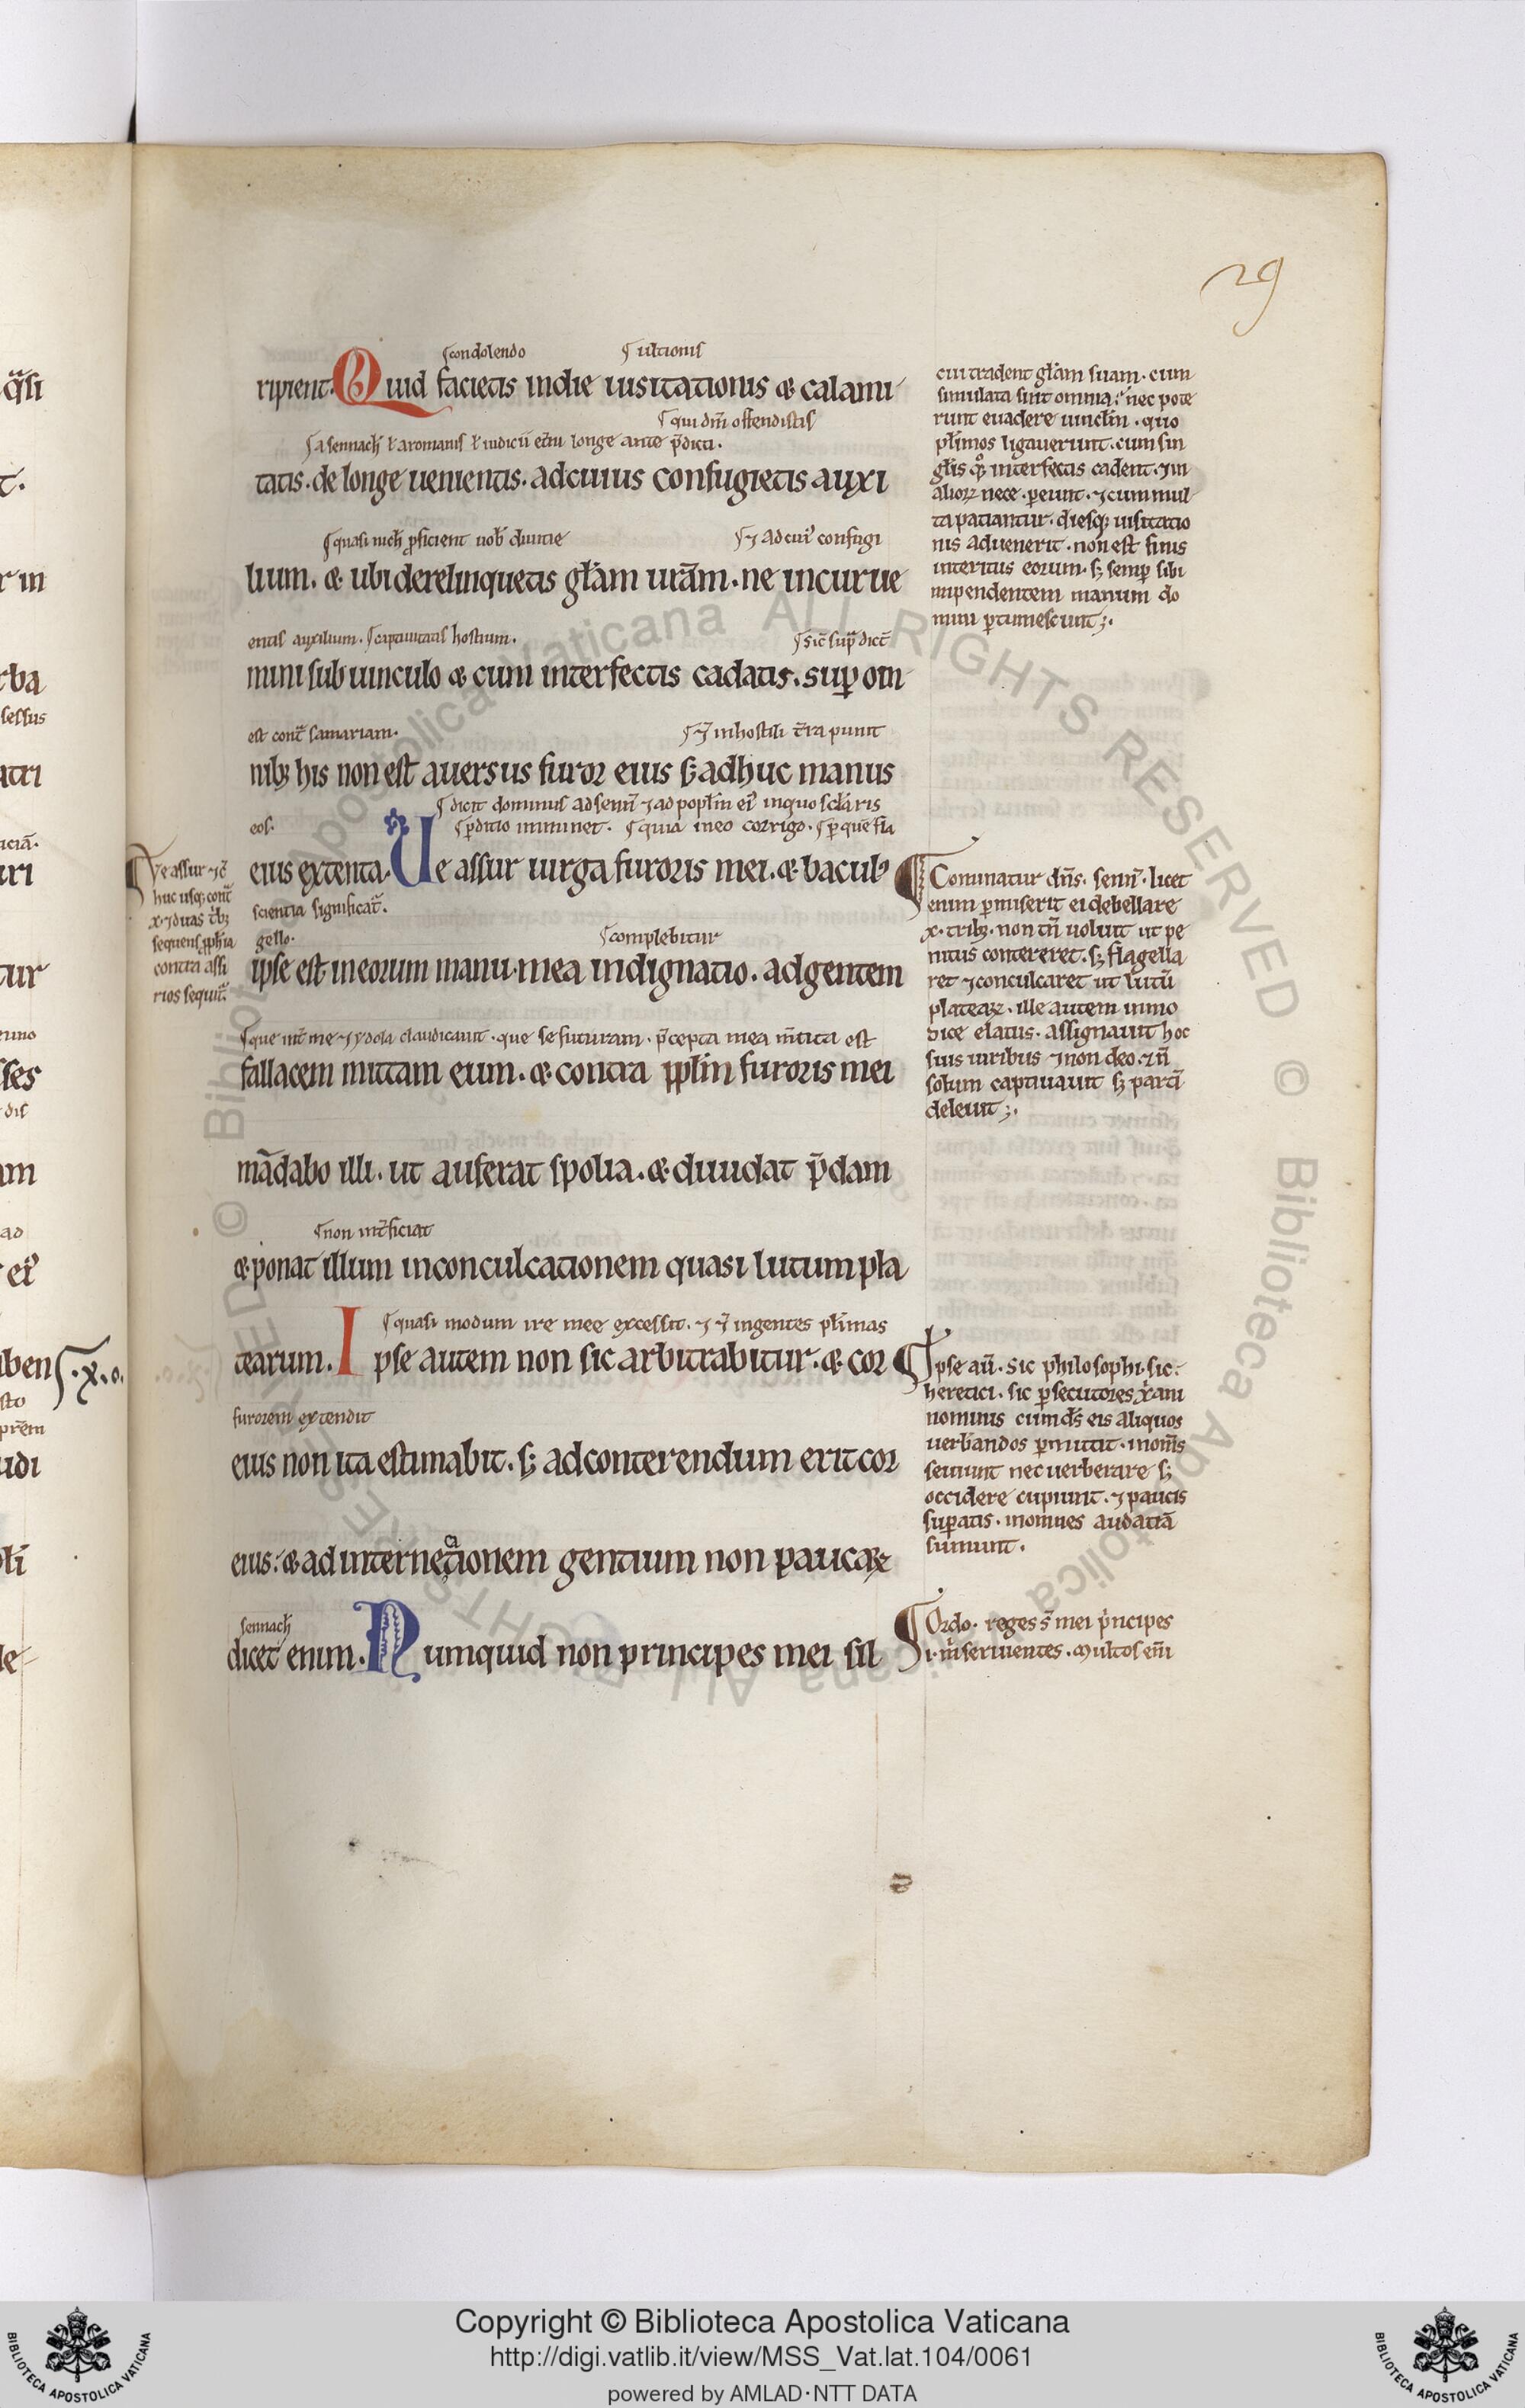 29
¶condolendo ¶ultionis
ripient. Quid facietis in die uisitationis & calami
¶qui dm̄ offendistis
¶a sennach̄ ł a romanis ł iudiciū etn̄i longe ante p̄dicti.
tatis. de longe uenientis. ad cuius confugietis auxi
¶quasi nich̄ ꝓficient uob̄ diuitie ¶⁊ ad cui᾽ confugi
lium. & ubi derelinquetis gl̄am ur̄am. ne incurue
entis auxilium. ¶captiuitatis hostium. ¶sic̄ sup̄ dict̄
mini sub uinculo & cum interfectis cadatis. sup̱ om
est cont̄ samariam. ¶⁊ in hostili t̄ra punit
nibꝫ his non est auersus furor eius sꝫ adhuc manus
¶dicit dominus ad senn̄ ⁊ ad popl̄m ei᾽ in quo scl̄aris
eos. ¶ꝑditio imminet. ¶quia in eo corrigo. ¶ꝑ quē fla
eius extenta. Ue assur uirga furoris mei. & baculꝰ
scientia significat̄.
gello. ¶complebitur
ipse est in eorum manu. mea indignatio. ad gentem
¶que int̄ me ⁊ ydola claudicauit. que se futuram. p̄cepta mea m̄tita est
fallacem mittam eum. & contra ppl̄m furoris mei
mādabo illi. ut auferat spolia. & diuidat p̄dam
¶non int̄ficiat
& ponat illum in conculcationem quasi lutum pla
¶quasi modum ire mee excessit. ⁊ ingentes pl̄imas
tearum. Ipse autem non sic arbitrabitur. & cor
furorem extendit
eius non ita estimabit. sꝫ ad conterendum erit cor
eius: & ad internetionem gentium non paucaꝝ
sennach̄
dicet enim. Numquid non principes mei sil
¶Ve assur ⁊c̄
huc usqꝫ cont̄
x. ⁊ duas t̄bꝫ
sequens ꝓph̄ia
contra assi
rios sequit̄.
cui tradent gl̄am suam. cum
simulata sint omnia: nec pote
runt euadere uinclm̄. quo
pl̄imos ligauerunt. cum sin
gl̄is qͦꝫ interfectis cadent. ⁊ in
alioꝝ nece. ꝑeunt. ⁊ cum mul
ta patiantur. diesqꝫ uisitatio
nis aduenerit. non est finis
interitus eorum. sꝫ semꝑ sibi
inpendentem manum do
mini ꝑtimescunt;.
¶Cominatur dn̄s. senn̄. licet
enim ꝑmiserit ei debellare
x. tribꝫ. non tn̄ uoluit ut pe
nitus contereret. sꝫ flagella
ret ⁊ conculcaret ut lutū
plateaꝝ. ille autem inmo
dice elatus. assignauit hoc
suis uiribus ⁊ non deo. ⁊ n̄
solum captiuauit sꝫ partī
deleuit;.
¶Ipse aū. sic philosophi. sic
heretici. sic ꝑsecutores xp̄iani
nominis cum ds̄ eis aliquos
uerb̄andos ꝑmittit. in om̄s
seuiunt nec uerberare sꝫ
occidere cupiunt. ⁊ paucis
suꝑatis. in omnes audatiā
sumunt.
¶Ordo. reges s̄ mei p̄ncipes
i. m̄ seruientes. multos em̄
¶.x.o.